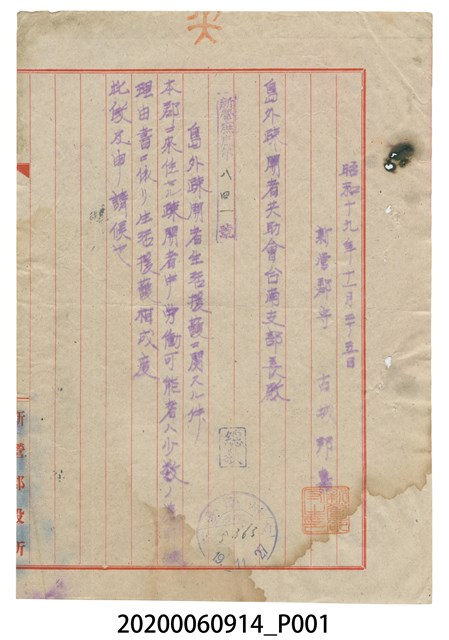 昭和十九年十一月二十五日
新營郡守 古城那
島外疎開者共助會台南支部長殿
八四一號
島外疎開者生活援護ニ關スル件
本郡ニ来住セル疎開者中労働可能者ハ少数
理由書ニ依リ生活援護相成度
此段及申請候也
新營郡役所
20200060914_P001